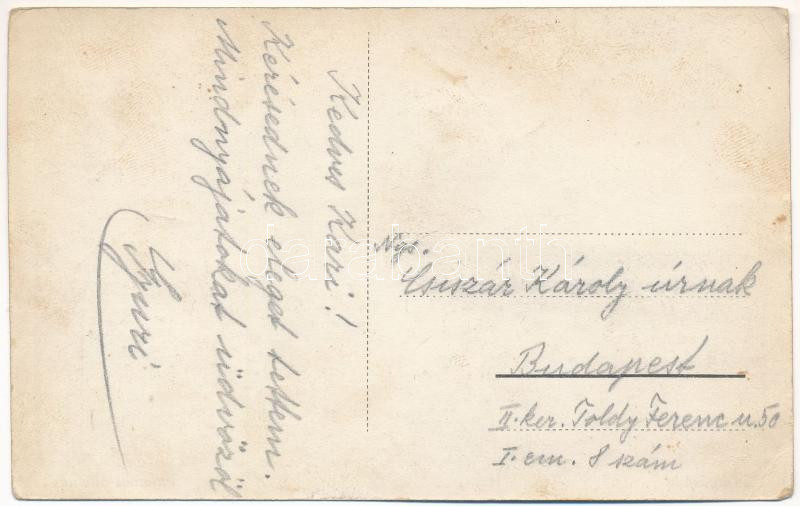 Kedves Kari!
Kérésednek eleget tettem.
Mindnyájatokat üdvözöl
Gyuri
Ngs.
Csiszár Károly úrnak
Budapest
II. ker. Toldy Ferenc u. 50
I. em. 8 szám
darabanth